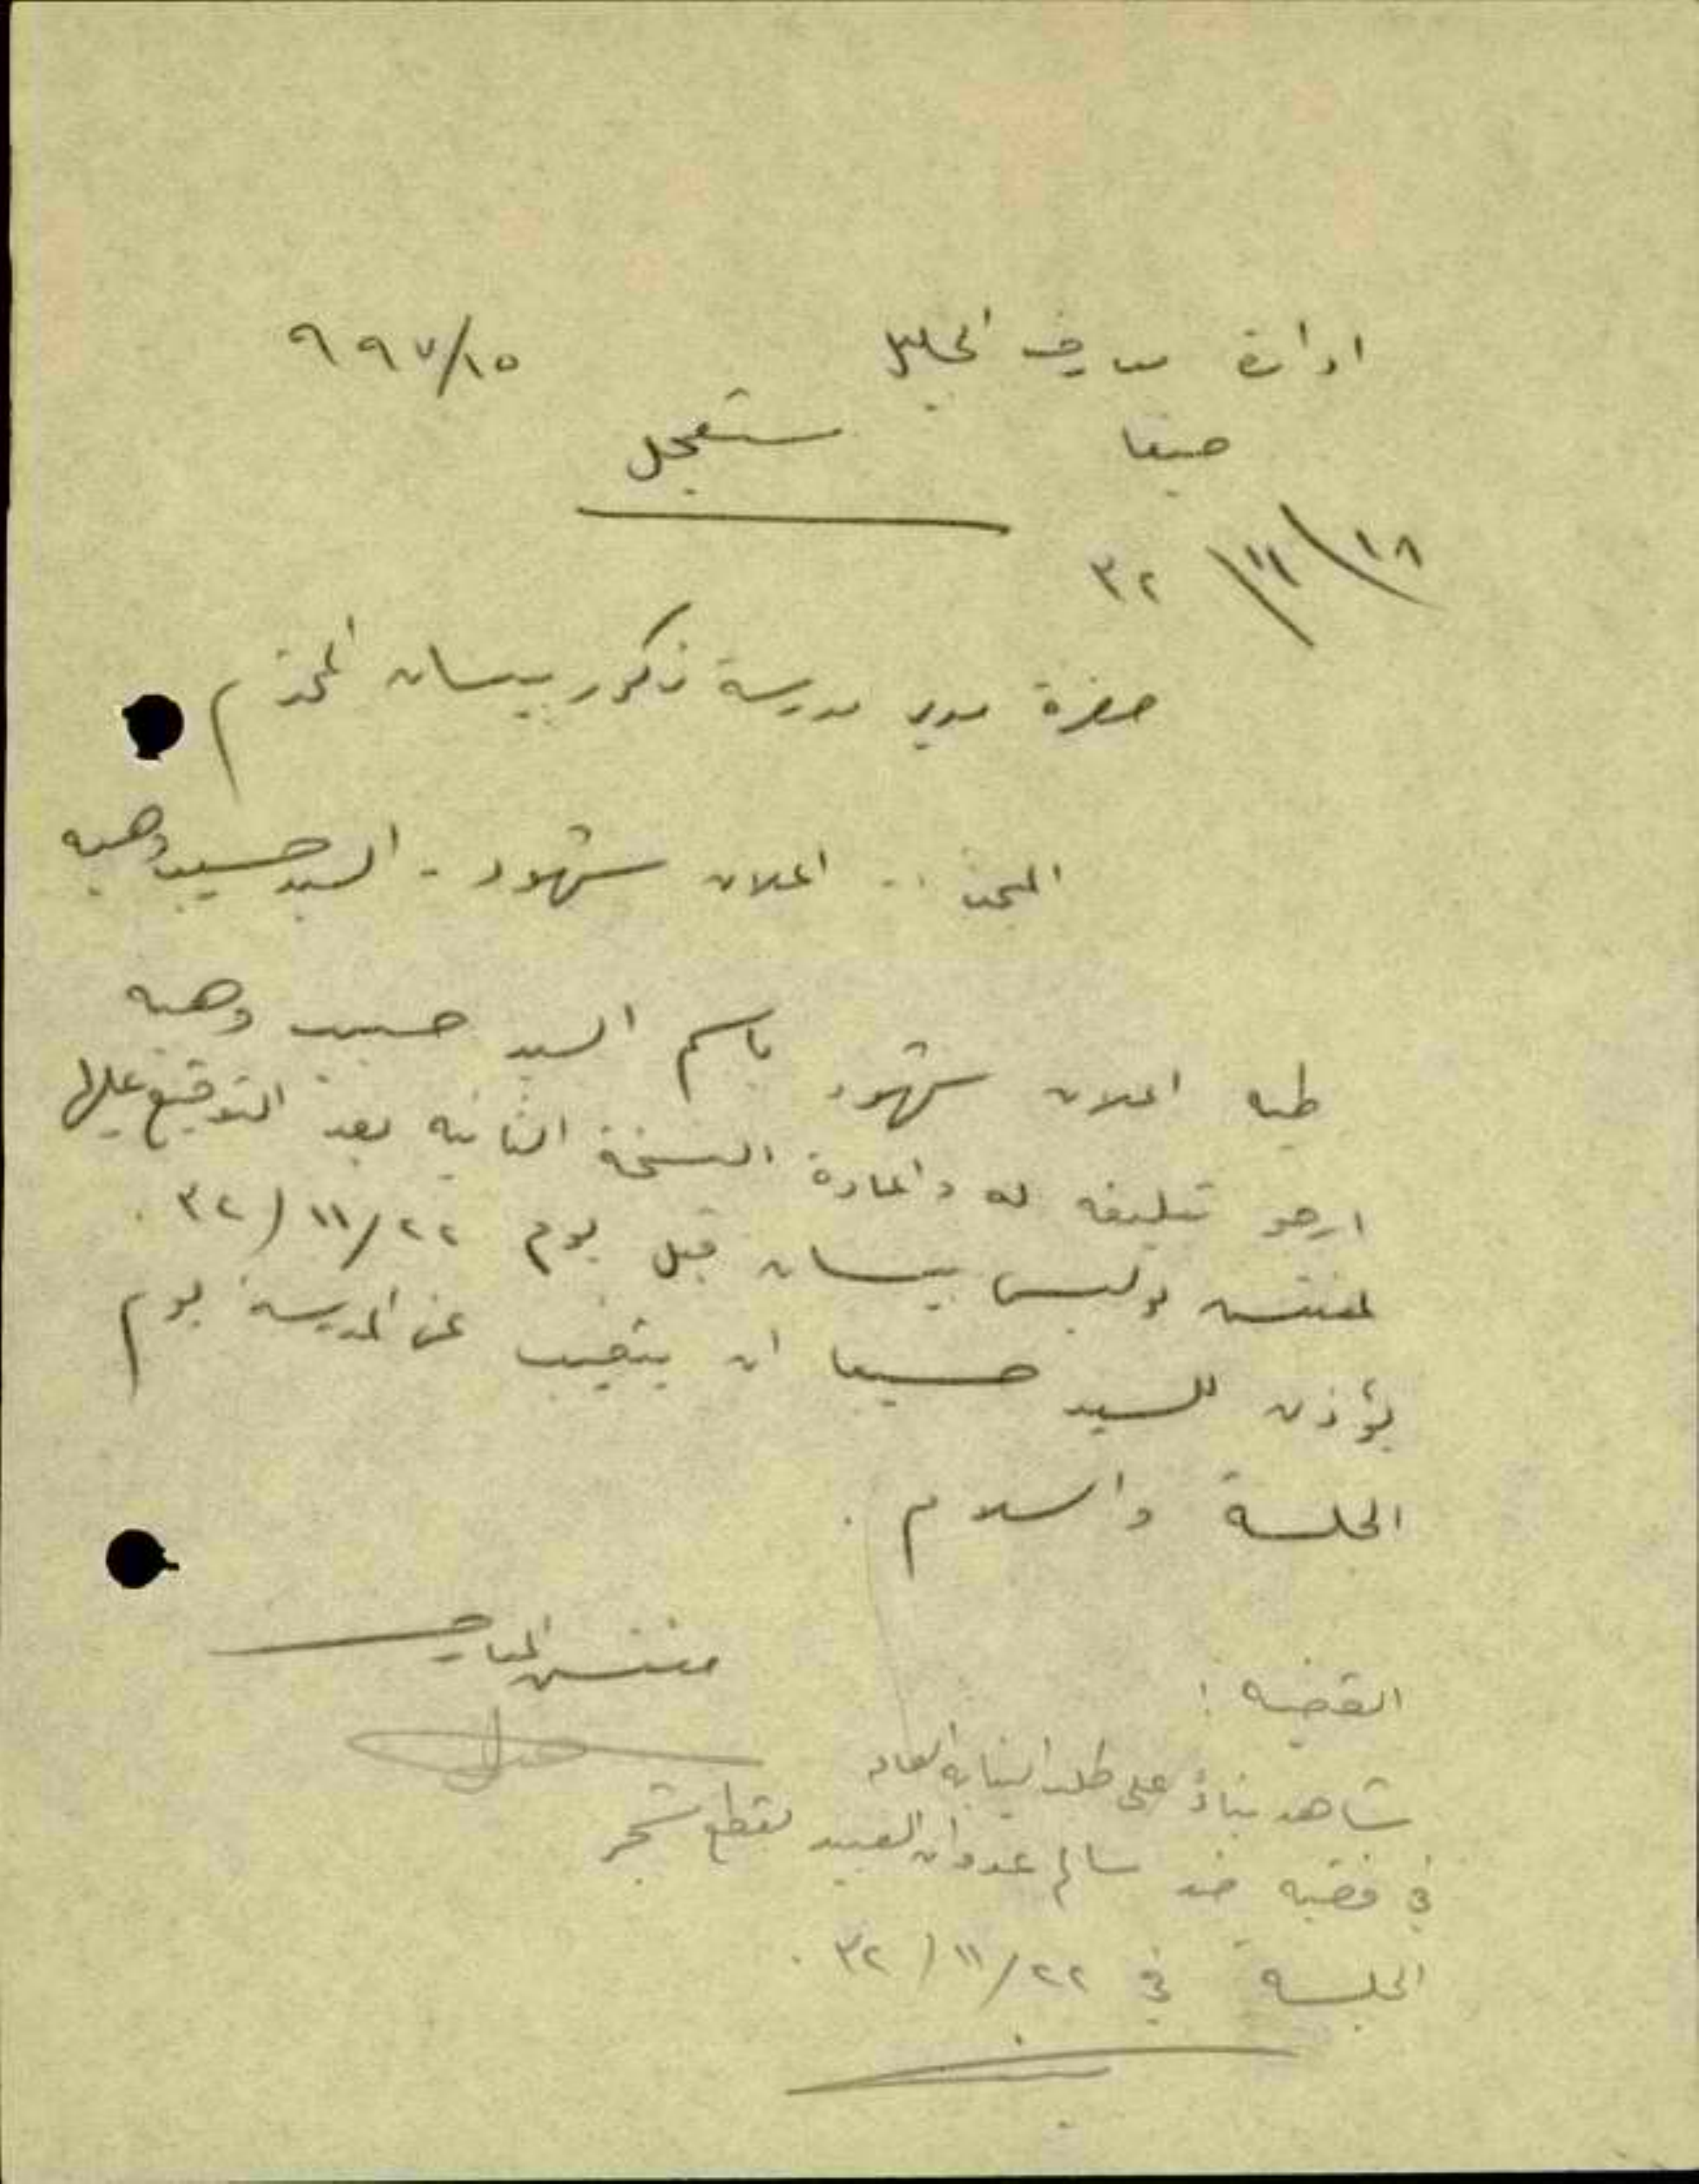 ادارة معارف الجليل ٩٩٧/١٥
حيفا مستعجل
١٨/١١/٣٢
حضرة مدير مدرسة ذكور بيسان المحترم
البحث :- اعلان شهود - السيد حسيب وهبه
طيه اعلان شهود باسم السيد حسيب وهبه
ارجو تبليغه له واعادة النسخة الثانيه بعد التوقيع عليها
لمفتش بوليس بيسان قبل يوم ٢٢/١١/٣٢ .
يؤذن للسيد حسيب ان يتغيب عن المدرسة يوم
الجلسة والسلام .
مفتش المعارف
القضيه :
شاهد بناءً على طلب النيابه العامه
في قضيه ضد سالم عدوان العبيد لقطع شجر
الجلسه في ٢٢/١١/٣٢ .